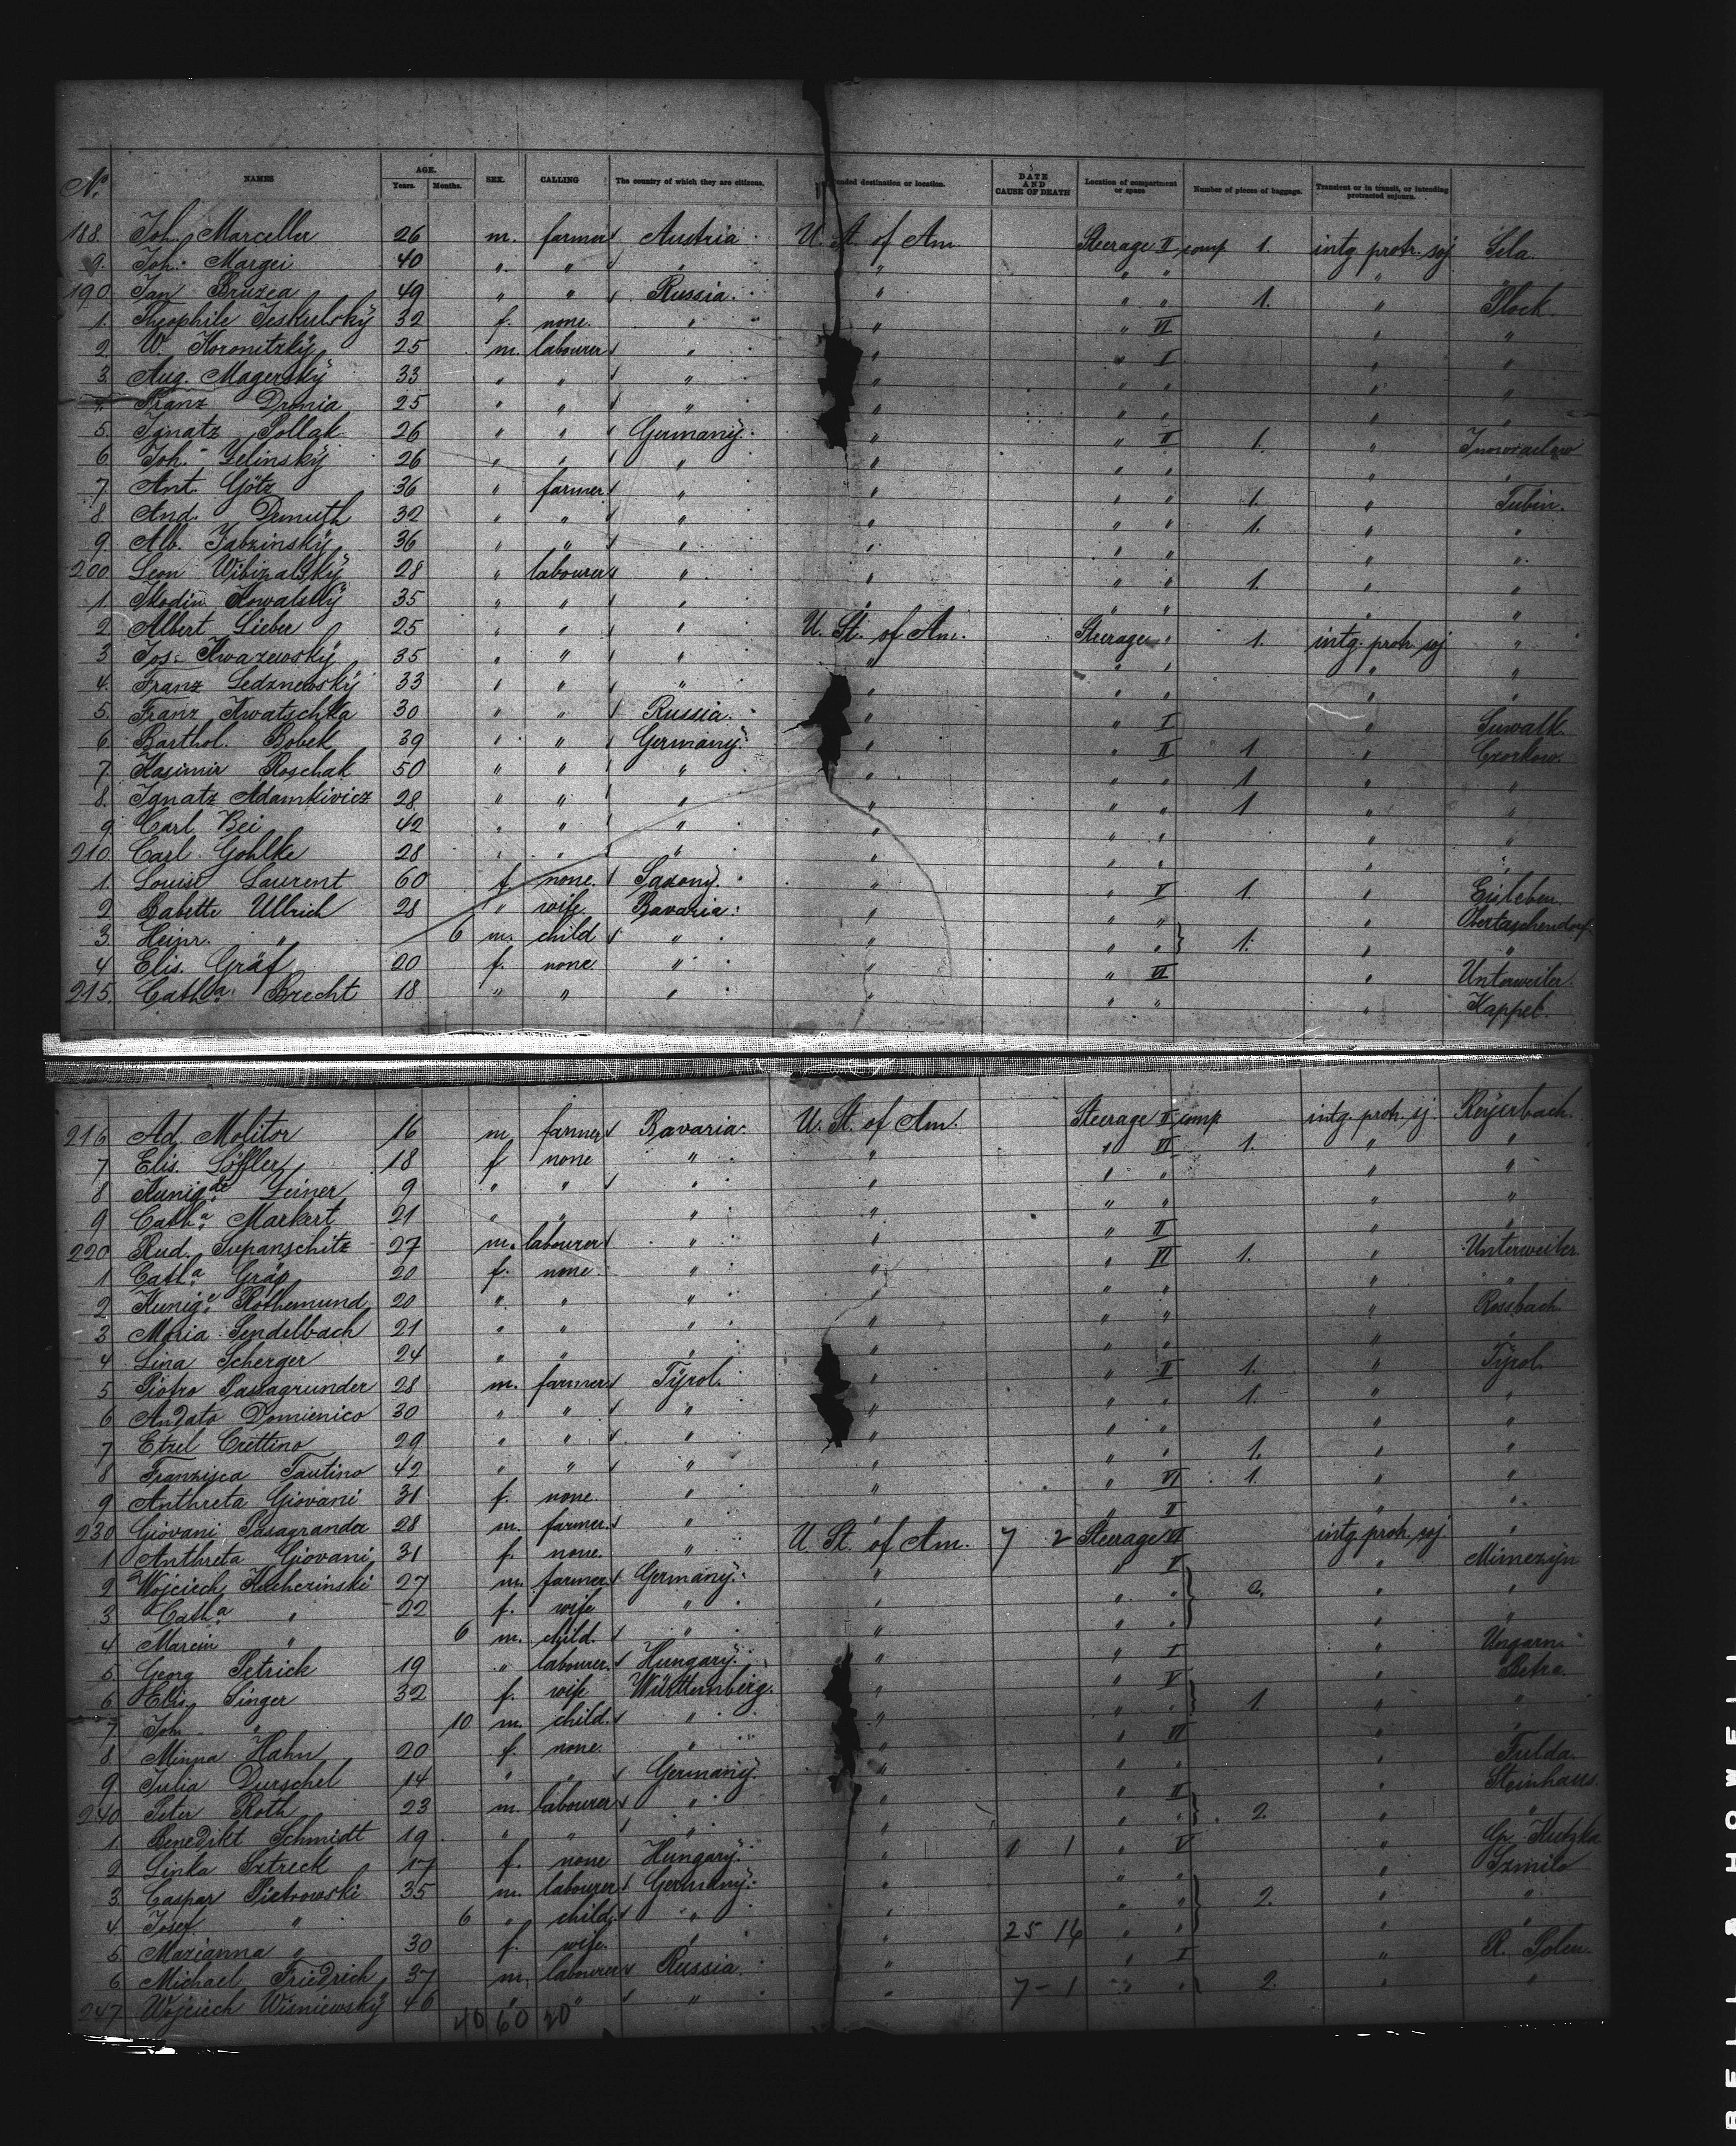 No. NAMES AGE. Years. Months. SEX. CALLING The country of which they are citizens. ended destination or location. DATE AND CAUSE OF DEATH Location of compartment or space Number of pieces of baggage. Transient or in transit, or intending protracted sojourn.
188. Joh. Marceller 26 m. farmer Austria U. St. of Am. Steerage II comp 1. intg protr. soj Sela.
9. Joh. Margei 40 " " " " " " "
190 Jan Bruzea 49 " " Russia. " " " 1. " Plock.
1. Theophile Jeskulský 32 f. none. " " " VI " "
2. W. Koronitzký 25 m. labourer " " " I " "
3. Aug. Magerský 33 " " " " " " " "
4. Franz Dronia 25 " " " " " " " "
5. Ignatz Pollak 26 " " Germany. " " II 1. " Inowraclaw
6 Joh. Zelinský 26 " " " " " " " "
7 Ant. Götz 36 " farmer " " " " 1. " Tubin.
8 And. Demuth 32 " " " " " " 1. " "
9 Alb. Jabzinský 36 " " " " " " " "
200 Leon Wibizalský 28 " labourer " " " " 1. " "
1. Kowalský 35 " " " " " " " "
2. Albert Lieber 25 " " " U. St. of Am. Steerage " 1. intg. protr. soj "
3 Jos. Kwazewský 35 " " " " " " " "
4. Franz Ledznewský 33 " " " " " " " "
5. Franz Kwatschka 30 " " Russia. " " I " Suwalk.
6. Barthol. Bobek 39 " " Germany. " " II 1 " Czorkow.
7 Kasimir Roschak 50 " " " " " " 1 " "
8. Ignatz Adamkivicz 28 " " " " " " 1 " "
9. Carl Bei 42 " " " " " " " "
210. Carl Gohlke 28 " " " " " " " "
1. Louise Laurent 60 f. none. Saxony. " " V 1. " Eisleben.
2 Babette Ullrich 28 " wife Bavaria. " " " " Obertaschendorf
3. Heinr. " 6 m. child " " " " 1. " "
4 Elis. Gräf 20 f. none " " " VI " Unterweiler.
215. Cath.a Brecht 18 " " " " " " " Kappel.
216 Ad. Molitor 16 m. farmer Bavaria. U. St. of Am. Steerage II comp intg. protr. sj. Reyerbach.
7 Elis. Löffler 18 f none " " " VI 1. " "
8 Kunig.de Zeiner 9 " " " " " " " "
9 Cath.a Markert 21 " " " " " " " "
220 Rud. Supanschitz 27 m. labourer " " " II " "
1 Cath.a Gräf 20 f. none " " " VI 1. " Unterweiler
2 Kunig.e Rothemund 20 " " " " " " " "
3 Maria Sendelbach 21 " " " " " " " Rossbach.
4 Lina Scherger 24 " " " " " " " "
5 Piotro Passagrunder 28 m. farmer Tyrol. " " II 1. " Tyrol.
6 Andato Domienico 30 " " " " " " 1. " "
7 Etzel Crettino 29 " " " " " " " "
8 Franzisca Tautino 42 " " " " " " 1. " "
9 Anthreta Giovani 31 f. none. " " " VI 1. " "
230 Giovani Pasagrander 28 m. farmer " " " II " "
1 Anthreta Giovani 31 f. none. " U. St. of Am. 7 2 Steerage VI intg. protr. soj. "
2 Wojciech Kucherinski 27 m. farmer Germany. " " V " Mimezyn
3 Cath.a " 22 f. wife " " " " 2. " "
4 Marcin " 6 m. child. " " " " " "
5. Georg Petrick 19 " labourer Hungary. " " I " Ungarn.
6 Elis. Singer 32 f. wife Württemberg. " " V " Betra.
7 Joh. " 10 m. child. " " " " 1. " "
8 Minna Hahn 20 f. none. " " " VI " "
9 Julia Durschel 14 " " Germany. " " " " Fulda.
240 Peter Roth 23 m. labourer " " " II " Steinhaus.
1 Benedikt Schmidt 19 " " " " " " 2. " "
2 Linka Sztreck 17 f. none Hungary. " 1 1 " V " Gr. Kutzka
3 Caspar Pietrowski 35 m. labourer Germany. " " " " Szmilo
4 Josef " 6 " child " " " " 2. " "
5 Marianna " 30 f. wife. " " 25 16 " " " "
6 Michael Friedrich 37 m. labourer Russia. " " I " R. Polen.
247 Wojciech Wisniewský 46 " " " " 7-1 " " 2. " "
40 60 20
BELL & HOWELL